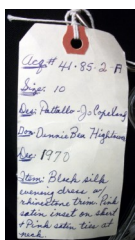 Acq# 41-85-2-A
Size: 10
Des: Pattullo-Jo Copeland
Don: Dannie Bea Hightower
Dec: 1970
Item: Black silk
evening dress w/
rhinestone trim. Pink
satin inset on skirt
+ Pink satin ties at
neck.